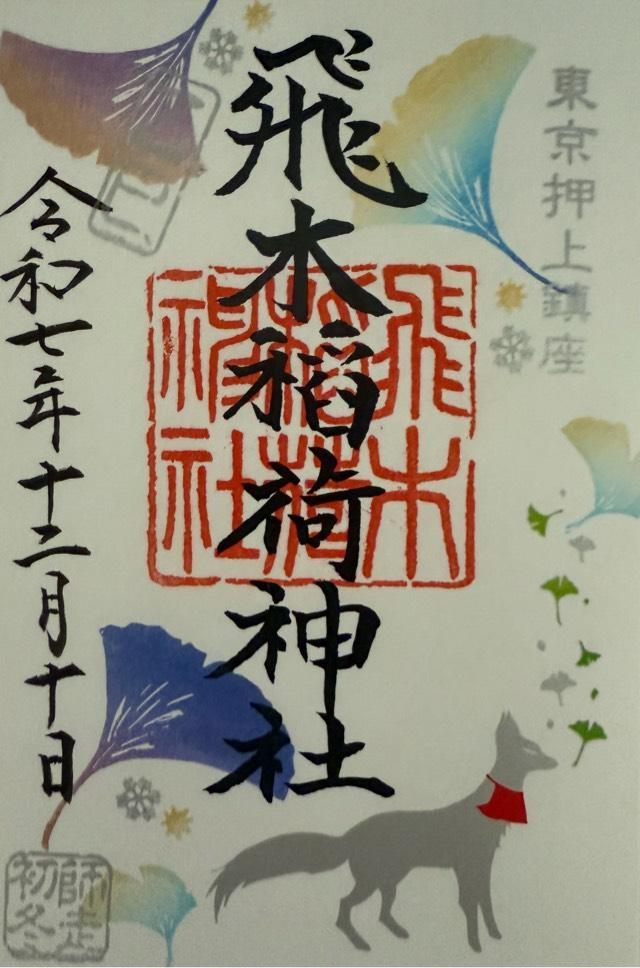 東京押上鎮座
飛木稲荷神社
飛木
稲荷
神社
令和七年十二月十日
師走
初冬